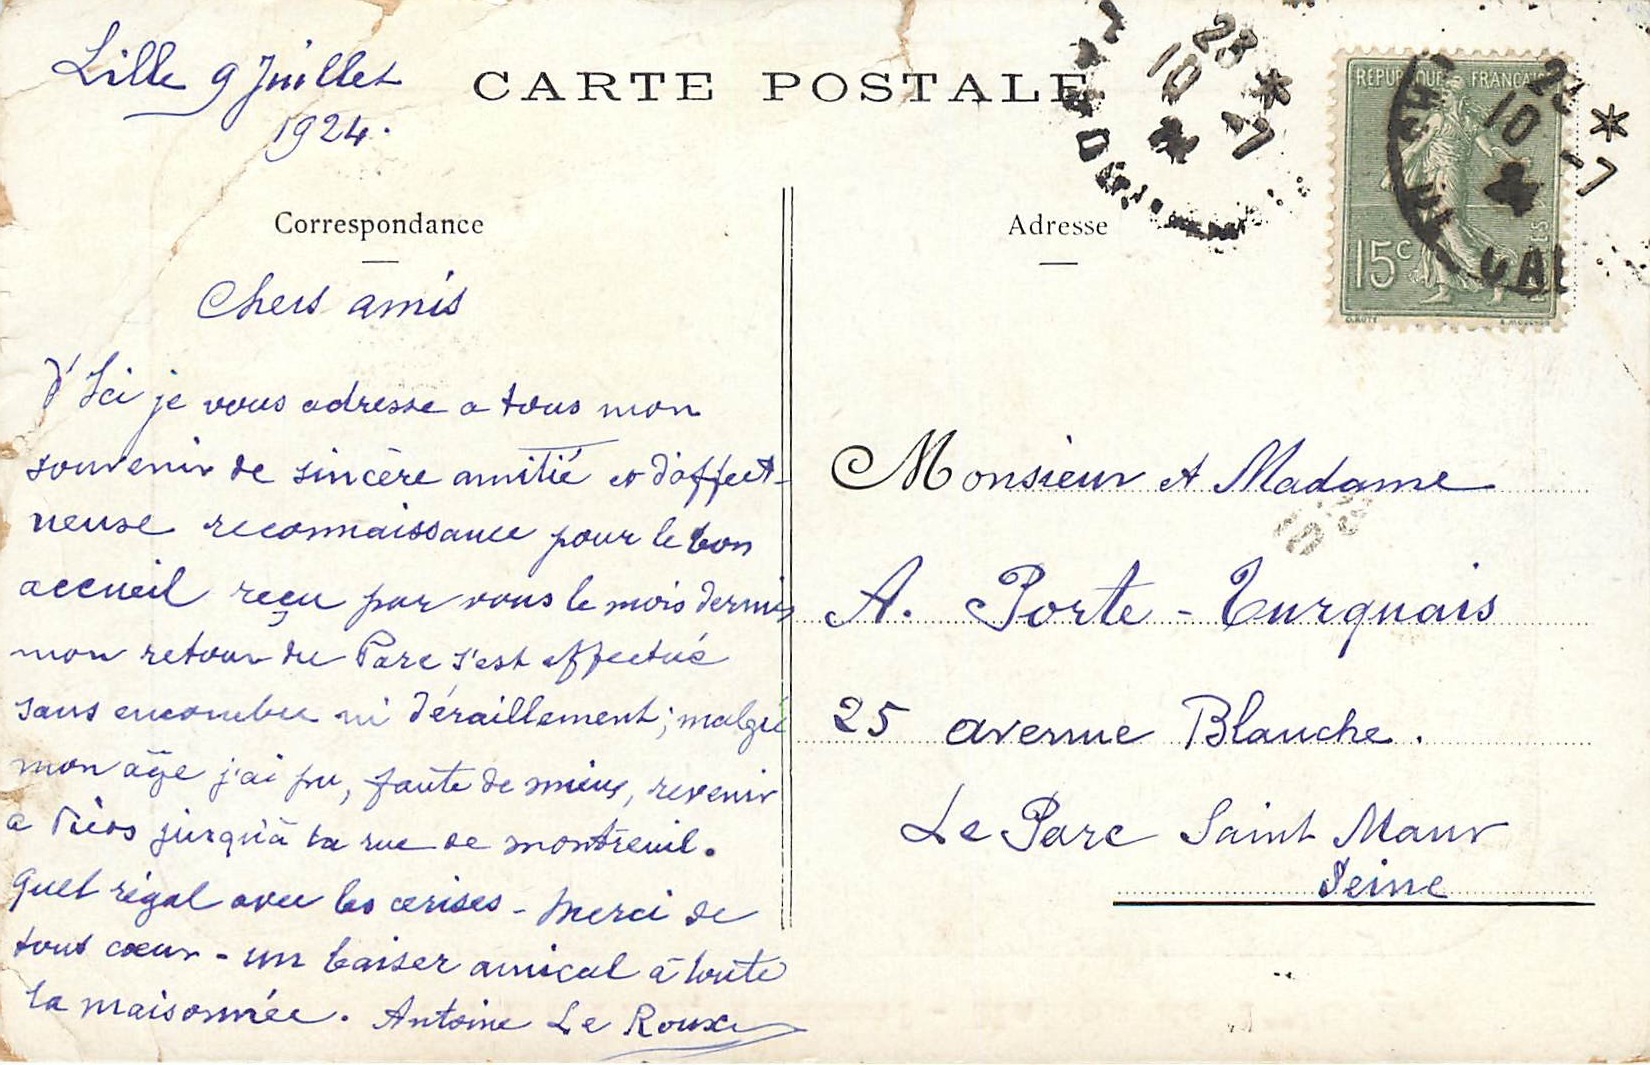 Lille 9 Juillet
1924.
CARTE POSTALE
Correspondance
Chers amis
D'Ici je vous adresse a tous mon
souvenir de sincère amitié et d'affect-
ueuse reconnaissance pour le bon
accueil reçu par vous le mois dernier
mon retour du Parc s'est effectué
sans encombre ni déraillement; malgré
mon âge j'ai pu, faute de mieux, revenir
a jusqu'à la rue de montreuil.
quel régal avec les cerises - Merci de
tout cœur - un baiser amical à toute
la maisonnée. Antoine Le Roux
Adresse
REPUBLIQUE FRANÇAISE
15c
23 *
10 -7
23 *
10 -7
Monsieur et Madame
A. Porte-Turquais
25 avenue Blanche.
Le Parc Saint Maur
Seine